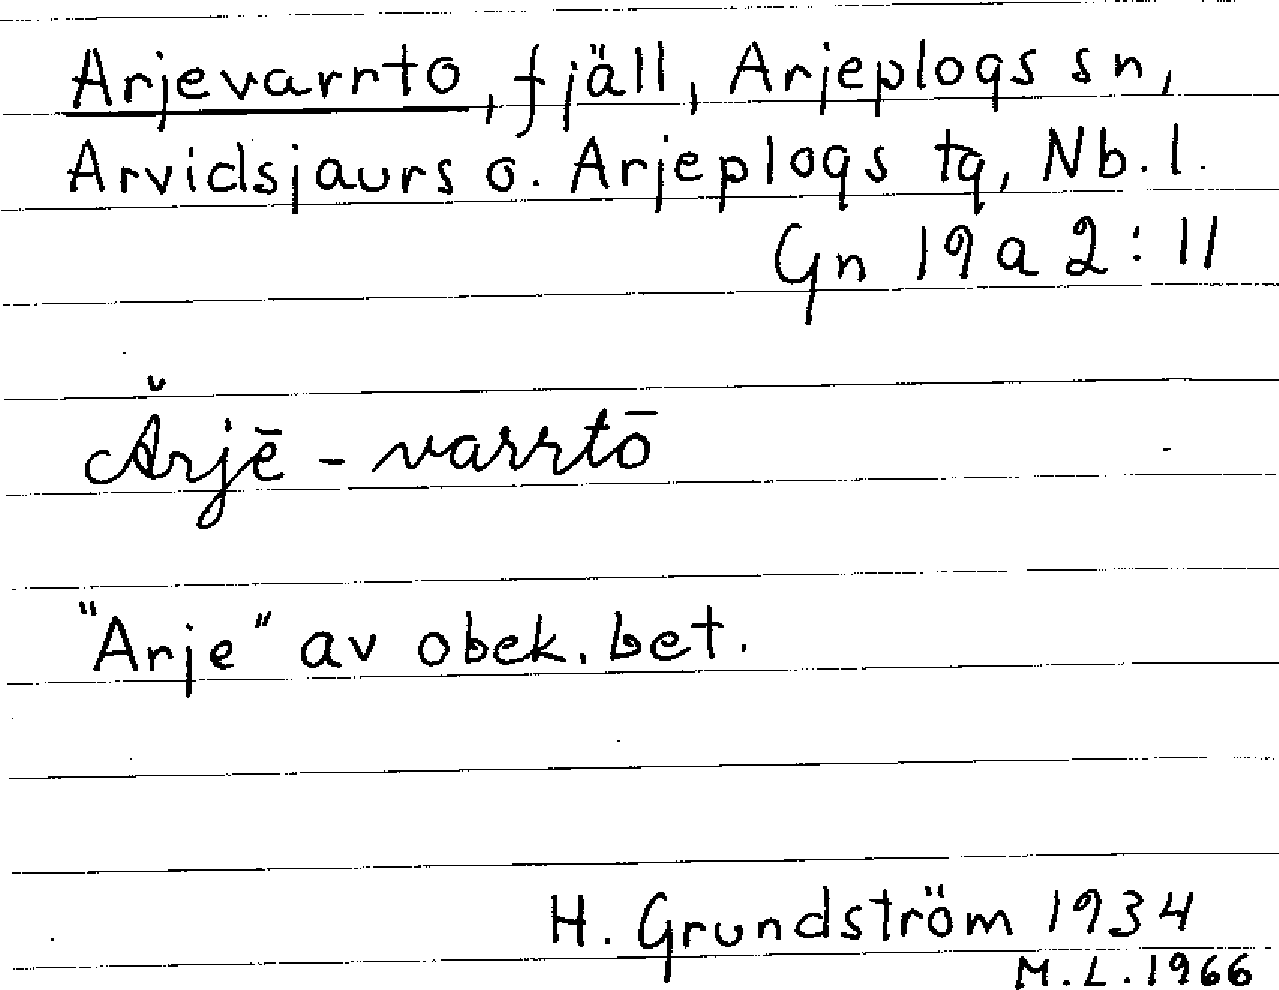 Arjevarrto, fjäll, Arjeplogs sn,
Arvidsjaurs o. Arjeplogs tg, Nb. l.
Gn 19 a 2:11
Ǎrjē - varrtō
"Arje" av obek. bet.
H. Grundström 1934
M.L. 1966